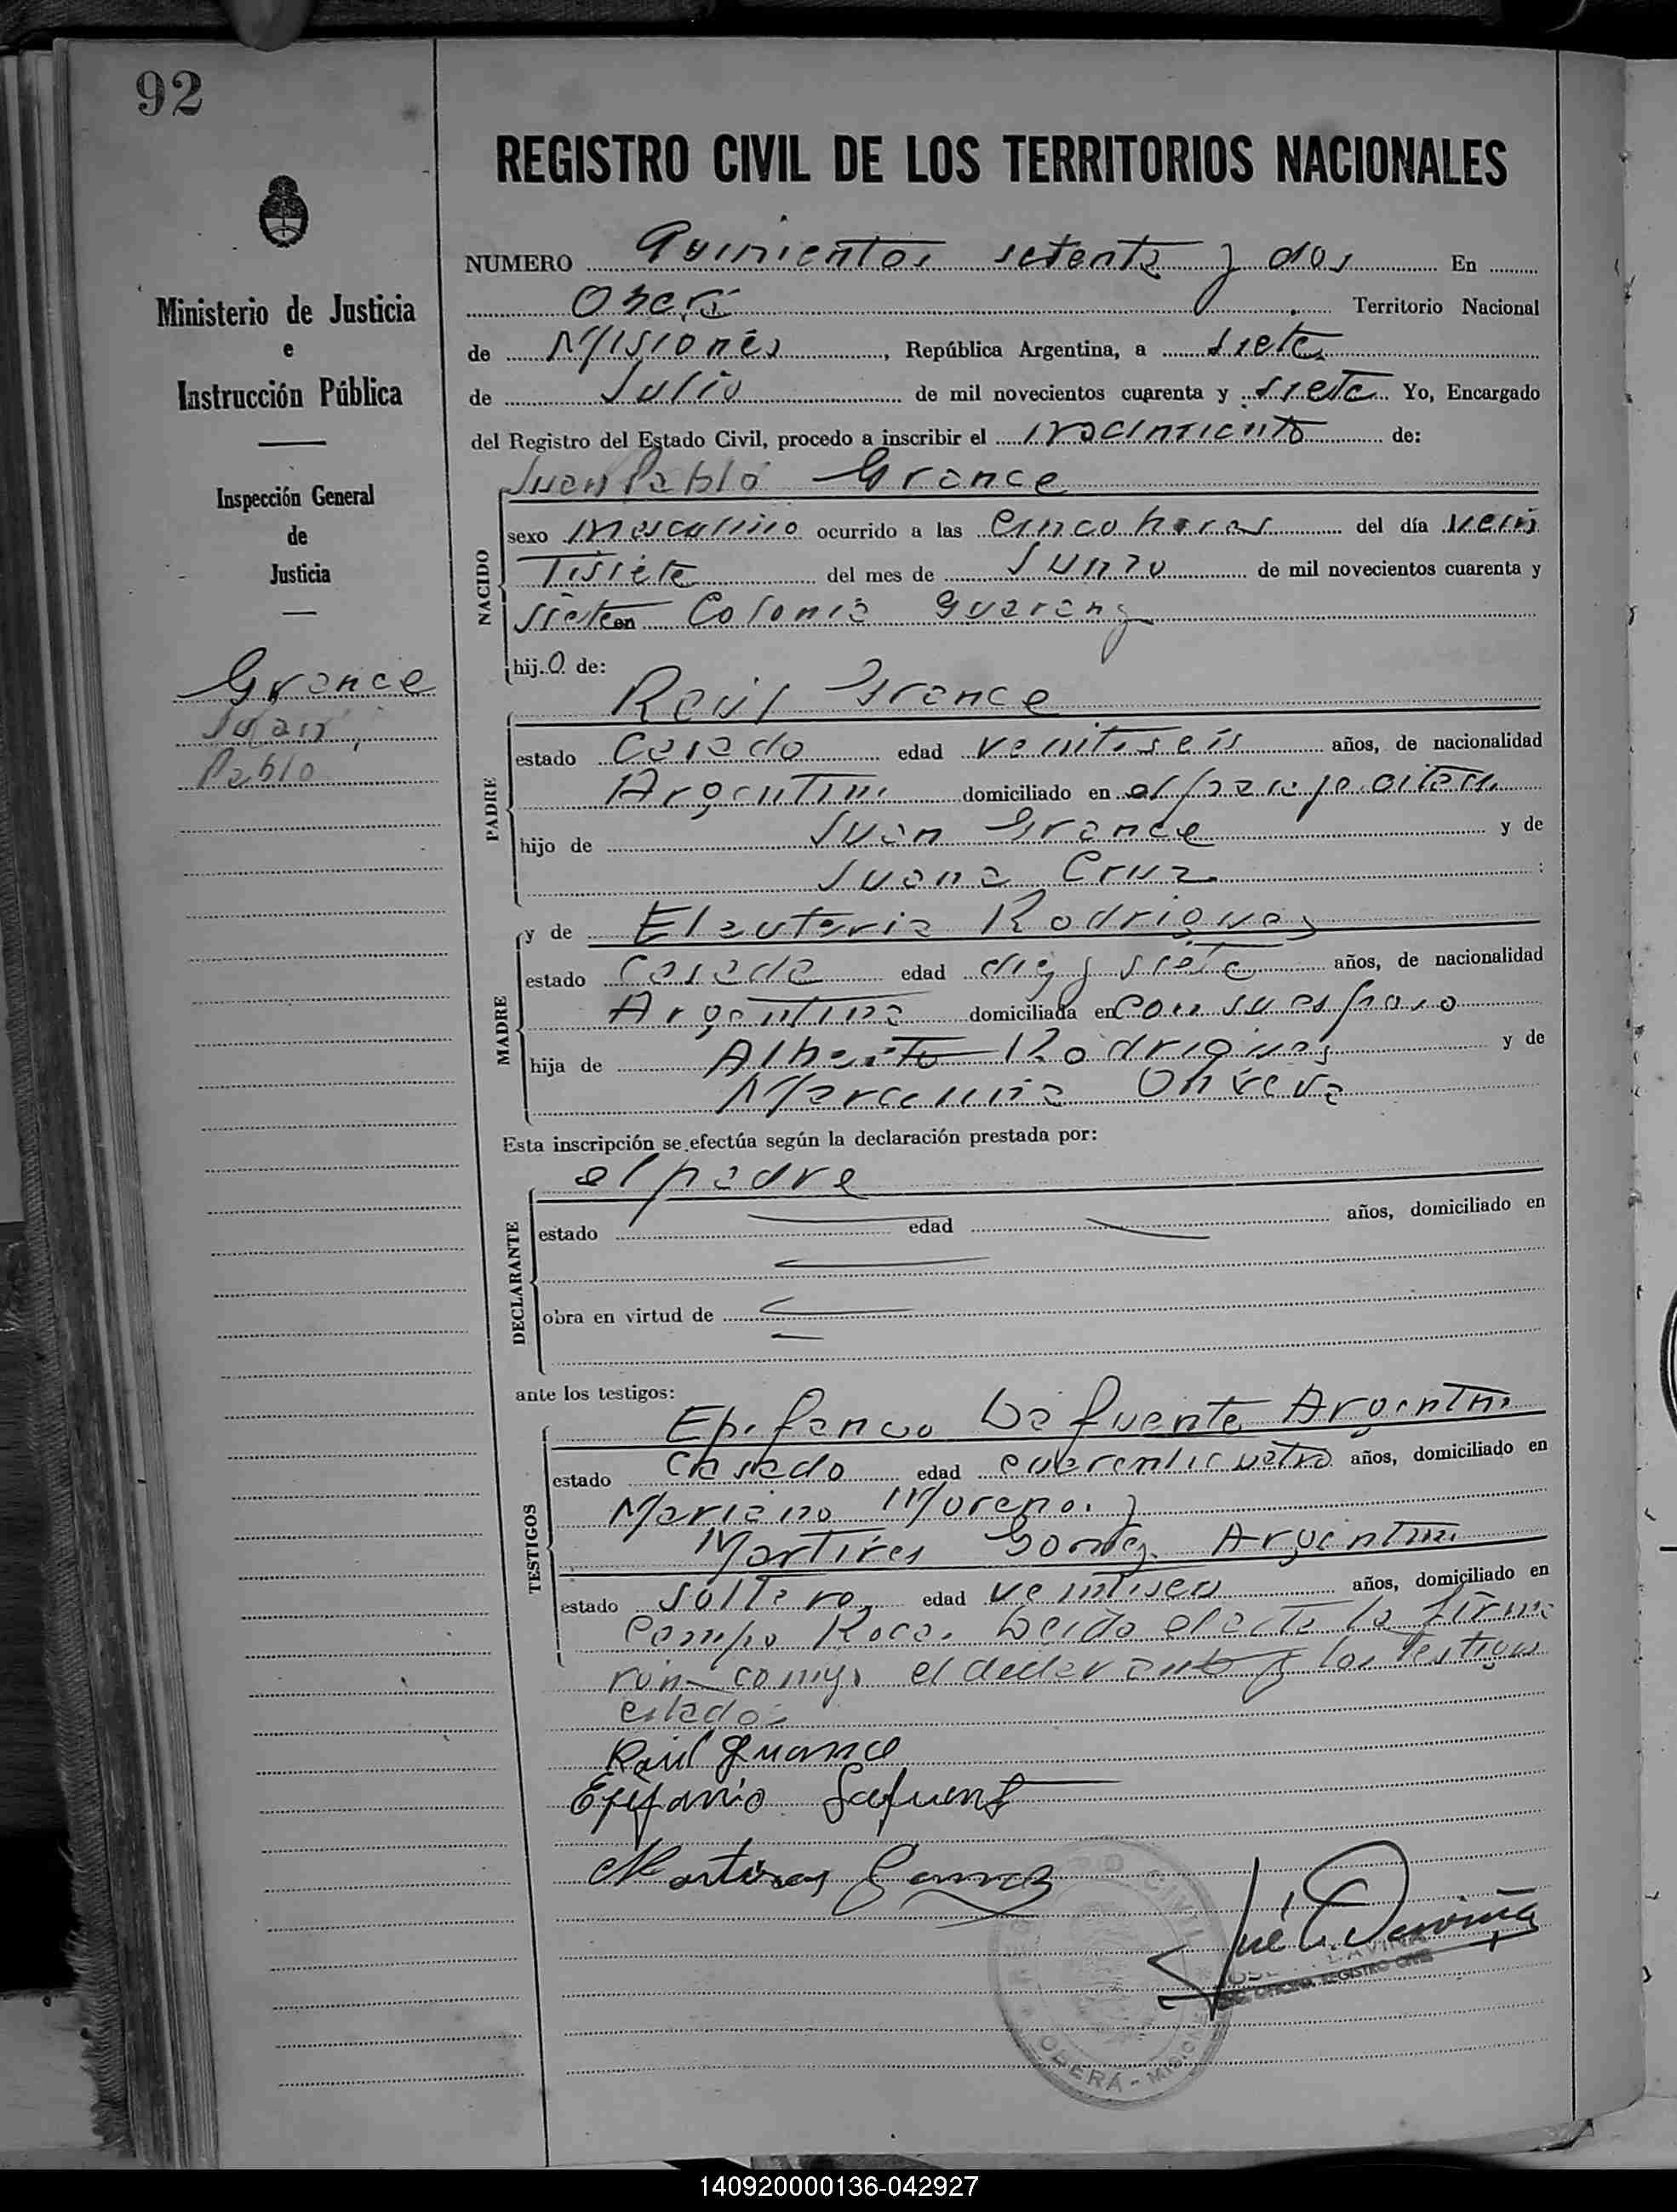 92
REGISTRO CIVIL DE LOS TERRITORIOS NACIONALES
Ministerio de Justicia
e
Instrucción Pública
Inspección General
de
Justicia
Grance
Juan
Pablo
NUMERO Quinientos setenta y dos En
Oberá Territorio Nacional
de Misiones, República Argentina, a siete
de Julio de mil novecientos cuarenta y siete Yo, Encargado
del Registro del Estado Civil, procedo a inscribir el nacimiento de:
NACIDO
Juan Pablo Grance
sexo masculino ocurrido a las cinco horas del día vein
tisiete del mes de Junio de mil novecientos cuarenta y
siete en Colonia Guarany
hijo de:
PADRE
Raúl Grance
estado Casado edad veintiseis años, de nacionalidad
Argentino domiciliado en el paraje citado
hijo de Juan Grance y de
Juana Cruz
MADRE
y de Eleuteria Rodrigues
estado Casada edad diez y siete años, de nacionalidad
Argentina domiciliada en con su esposo
hija de Alberto Rodrigues y de
Marcelina
Esta inscripción se efectúa según la declaración prestada por:
DECLARANTE
el padre
estado edad años, domiciliado en
obra en virtud de
ante los testigos:
TESTIGOS
Epifanio Lafuente Argentino
estado Casado edad cuarenticuatro años, domiciliado en
Mariano Moreno. y
Martires Gomez Argentino
estado Soltero edad veintiseis años, domiciliado en
Campo Roca. Leida el acta la firma
ron conmigo el declarante y los testigos
citados
Raúl Grance
Epifanio Lafuente
Martires Gomez
OFICINA REGISTRO CIVIL
OBERÁ - MISIONES
140920000136-042927